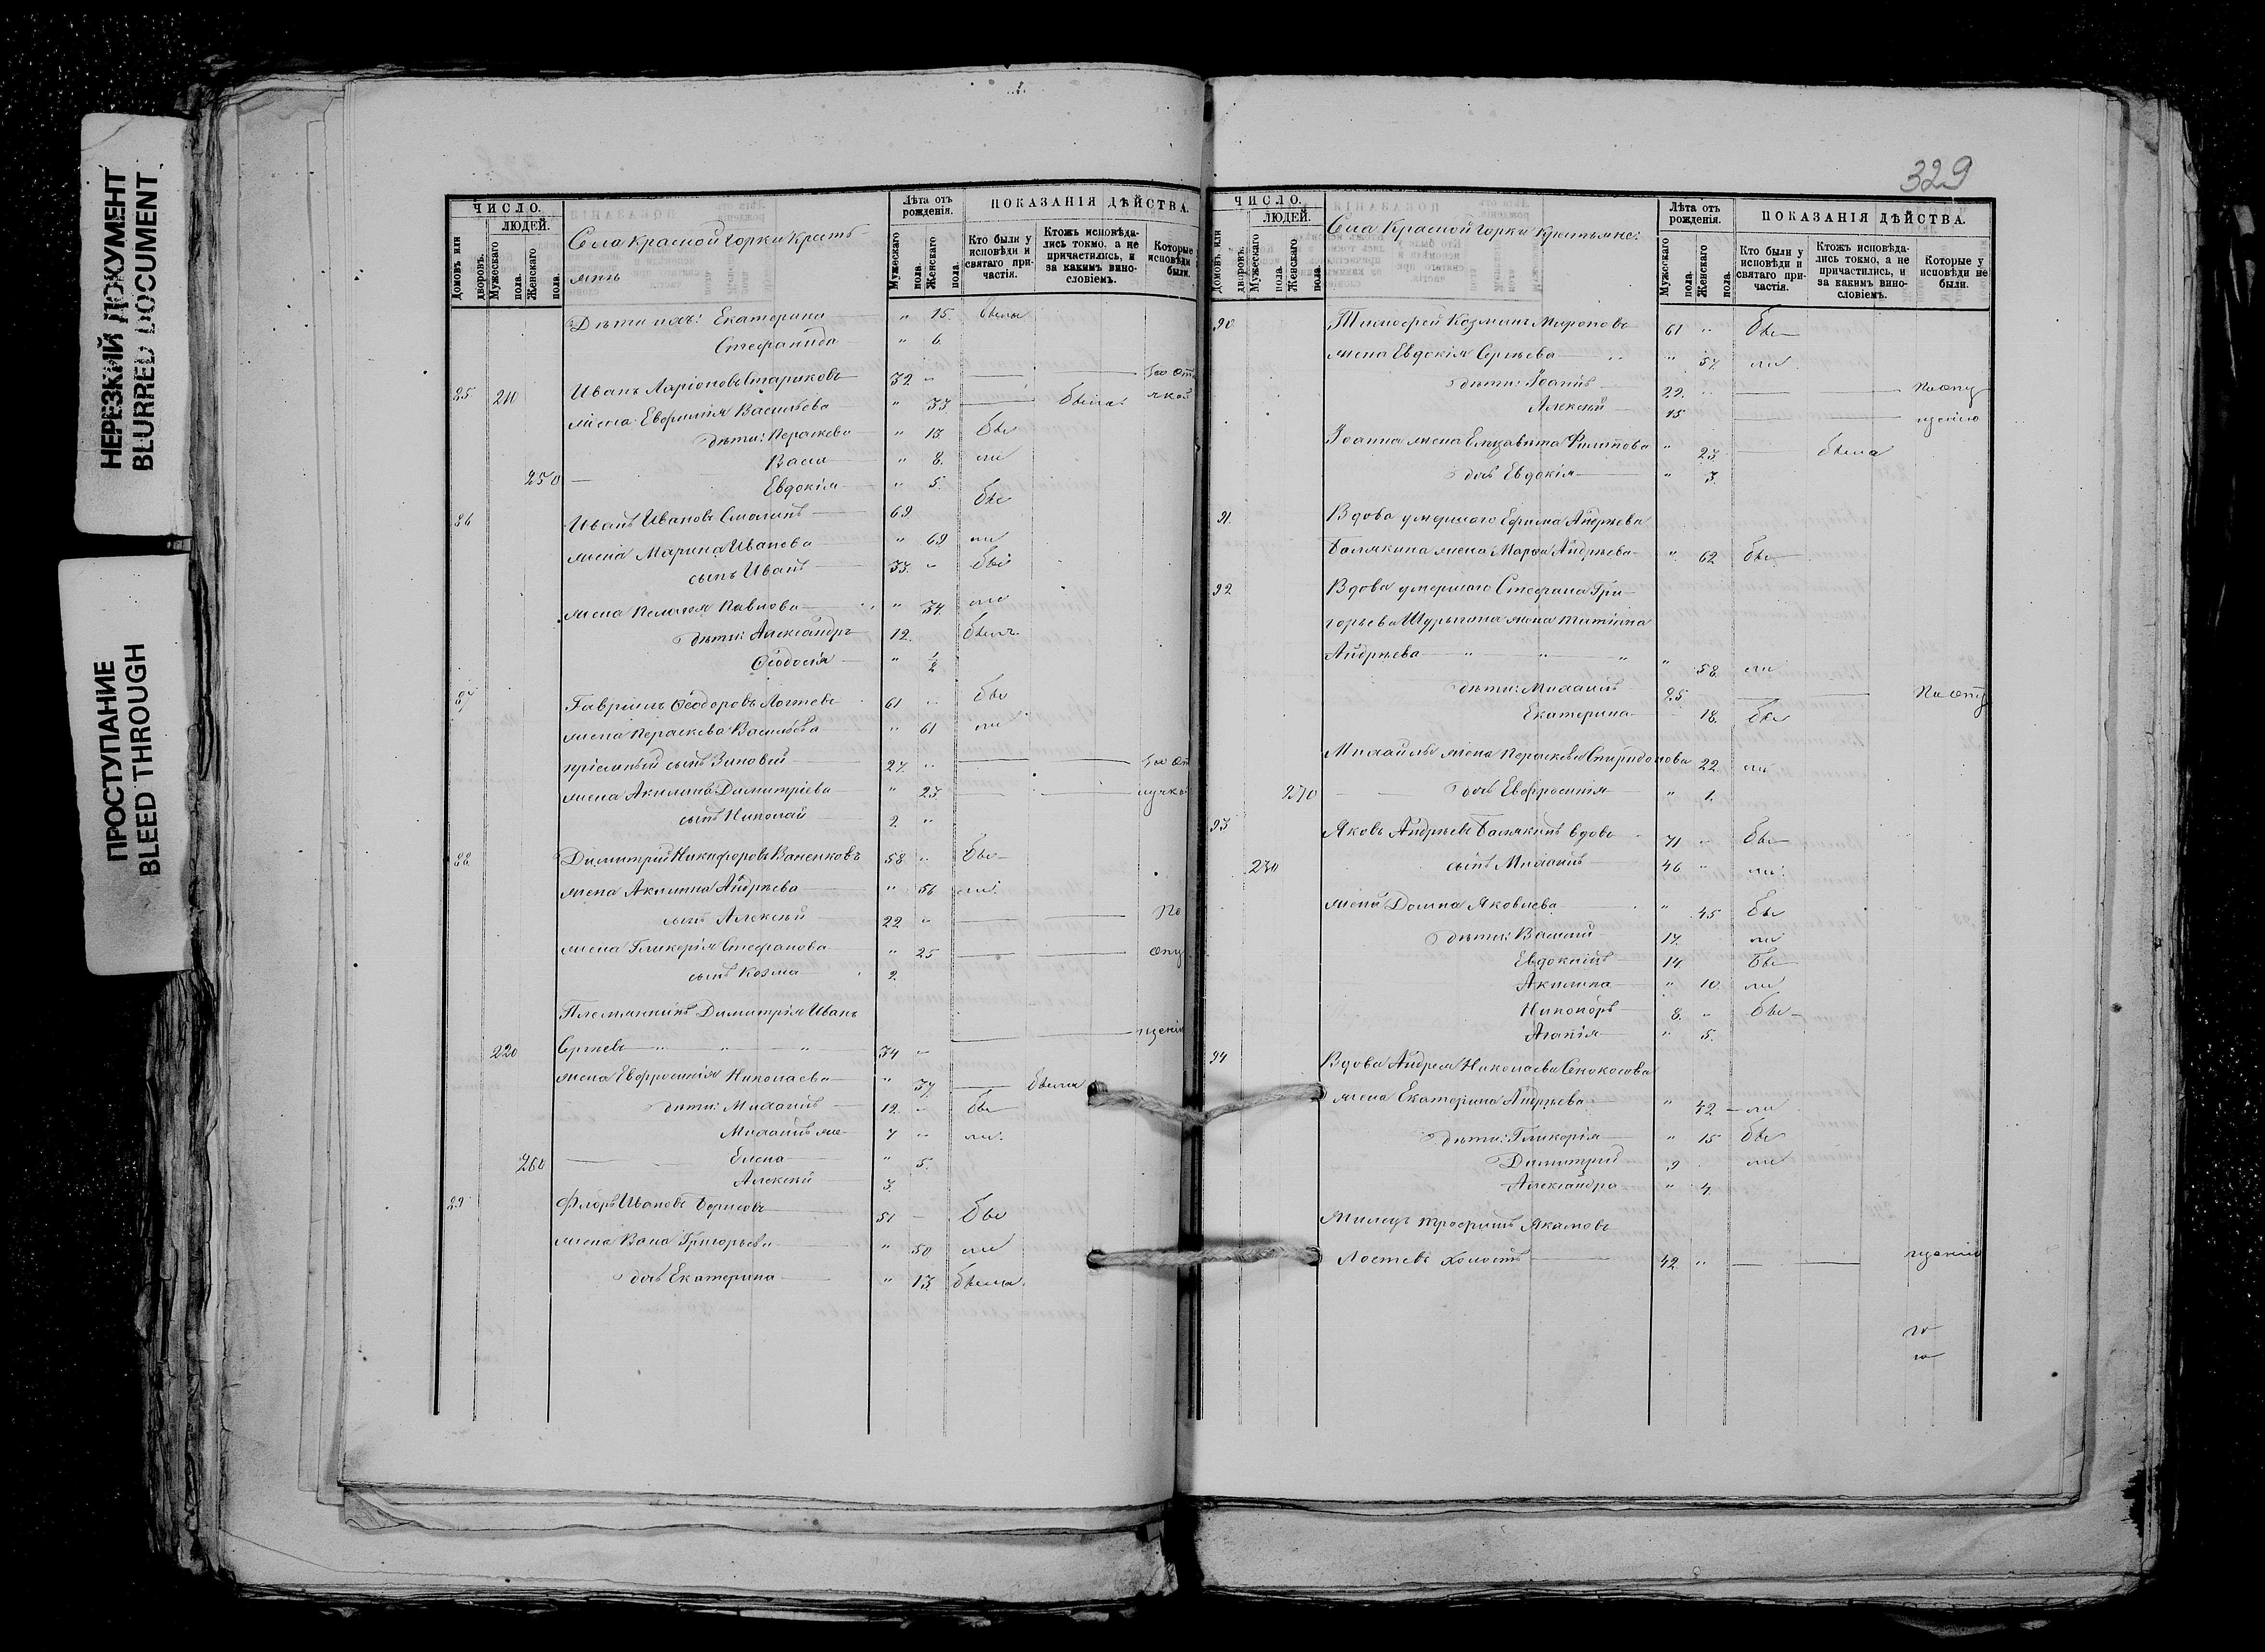 НЕРЕЗКИЙ ДОКУМЕНТ
BLURRED DOCUMENT
ПРОСТУПАНИЕ
BLEED THROUGH
ЧИСЛО.
ЛЮДЕЙ.
Домовъ или дворовъ.
Мужескаго пола.
Женскаго пола.
Села Красной горки Кресть-
янъ
Лѣта отъ рожденія.
Мужескаго пола.
Женскаго пола.
ПОКАЗАНІЯ ДѢЙСТВА.
Кто были у исповѣди и святаго при-частія.
Ктожъ исповѣда-лись токмо, а не причастились, и за какимъ вино-словіемъ.
Которые исповѣди были.
Дѣти ихъ: Екатерина " 15. были
Стефанида " 6.
85 210 Иванъ Ларіоновъ Стариковъ 32 "
жена Евфимія Васильева " 33 была
дѣти: Параскева " 13 бы
Васса " 8. ли
250 Евдокія " 5.
86 Иванъ Ивановъ Смолинъ 69. бы
жена Марина Иванова " 69 ли
сынъ Иванъ 33. " бы
жена Пелагея Павлова " 34. ли
дѣти: Александръ 12. былъ
Ѳеодосія " 1/2
87 Гавріилъ Ѳеодоровъ Логтевъ 61 " бы
жена Параскева Васильева " 61 ли
пріемный сынъ Зиновій 27. " по от
жена Акилина Димитріева " 23. лучкѣ
сынъ Николай 2 "
88. Димитрій Никифоровъ Ваненковъ 58 " бы
жена Акилина Андрѣева " 56 ли
сынъ Алексѣй 22 " По
жена Гликерія Стефанова " 25 опу
сынъ Козма 2
Племянникъ Димитрія Иванъ
220 Сергѣевъ " " " 34 " щенію
жена Евфросинія Николаева " 37. была
дѣти: Михаилъ 12. " бы
Михаилъ же 7 " ли.
260 Елена " 5.
Алексѣй 3.
89 Флоръ Ивановъ Борисовъ 51 бы
жена Васса Григорьева " 50 ли
дочь Екатерина " 13. была
329
ЧИСЛО.
ЛЮДЕЙ.
Домовъ или дворовъ.
Мужескаго пола.
Женскаго пола.
Села Красной горки Крестьяне:
Лѣта отъ рожденія.
Мужескаго пола.
Женскаго пола.
ПОКАЗАНІЯ ДѢЙСТВА.
Кто были у исповѣди и святаго при-частія.
Ктожъ исповѣда-лись токмо, а не причастились, и за какимъ вино-словіемъ.
Которые у исповѣди не были.
90 Тимофей Козминъ Мироновъ 61 " бы
жена Евдокія Сергѣева " 57. ли.
дѣти: Іоаннъ 22. " По опу
Алексѣй 15 щенію
Іоанна жена Елизавета Филиппова " 23 была
дочь Евдокія " 3.
91. Вдова умершаго Ефима Андрѣева
Балякина жена Марѳа Андрѣева " 62 бы
92 Вдова умершаго Стефана Гри-
горьева Шурыгина жена Татіана
Андрѣева " " " " 58. ли
дѣти: Михаилъ 25. По опу
Екатерина 18. бы
Михаила жена Параскева Спиридонова 22. ли
270 дочь Евфросинія " 1.
93 Яковъ Андрѣевъ Балякинъ вдовъ 71 " бы
230 сынъ Михаилъ 46 " ли.
жена Домна Яковлева " 45 бы
дѣти: Василій 17. ли
Евдокимъ 14. бы
Акилина " 10. ли
Никоноръ 8. " бы
Агапія " 5.
94 Вдова Андрея Николаева Сенокосова
жена Екатерина Андрѣева " 42 ли
дѣти: Гликерія " 15 бы
Димитрій 9 ли
Александра " 4.
Трофимъ Якимовъ
Логтевъ холостъ 42. " щенію